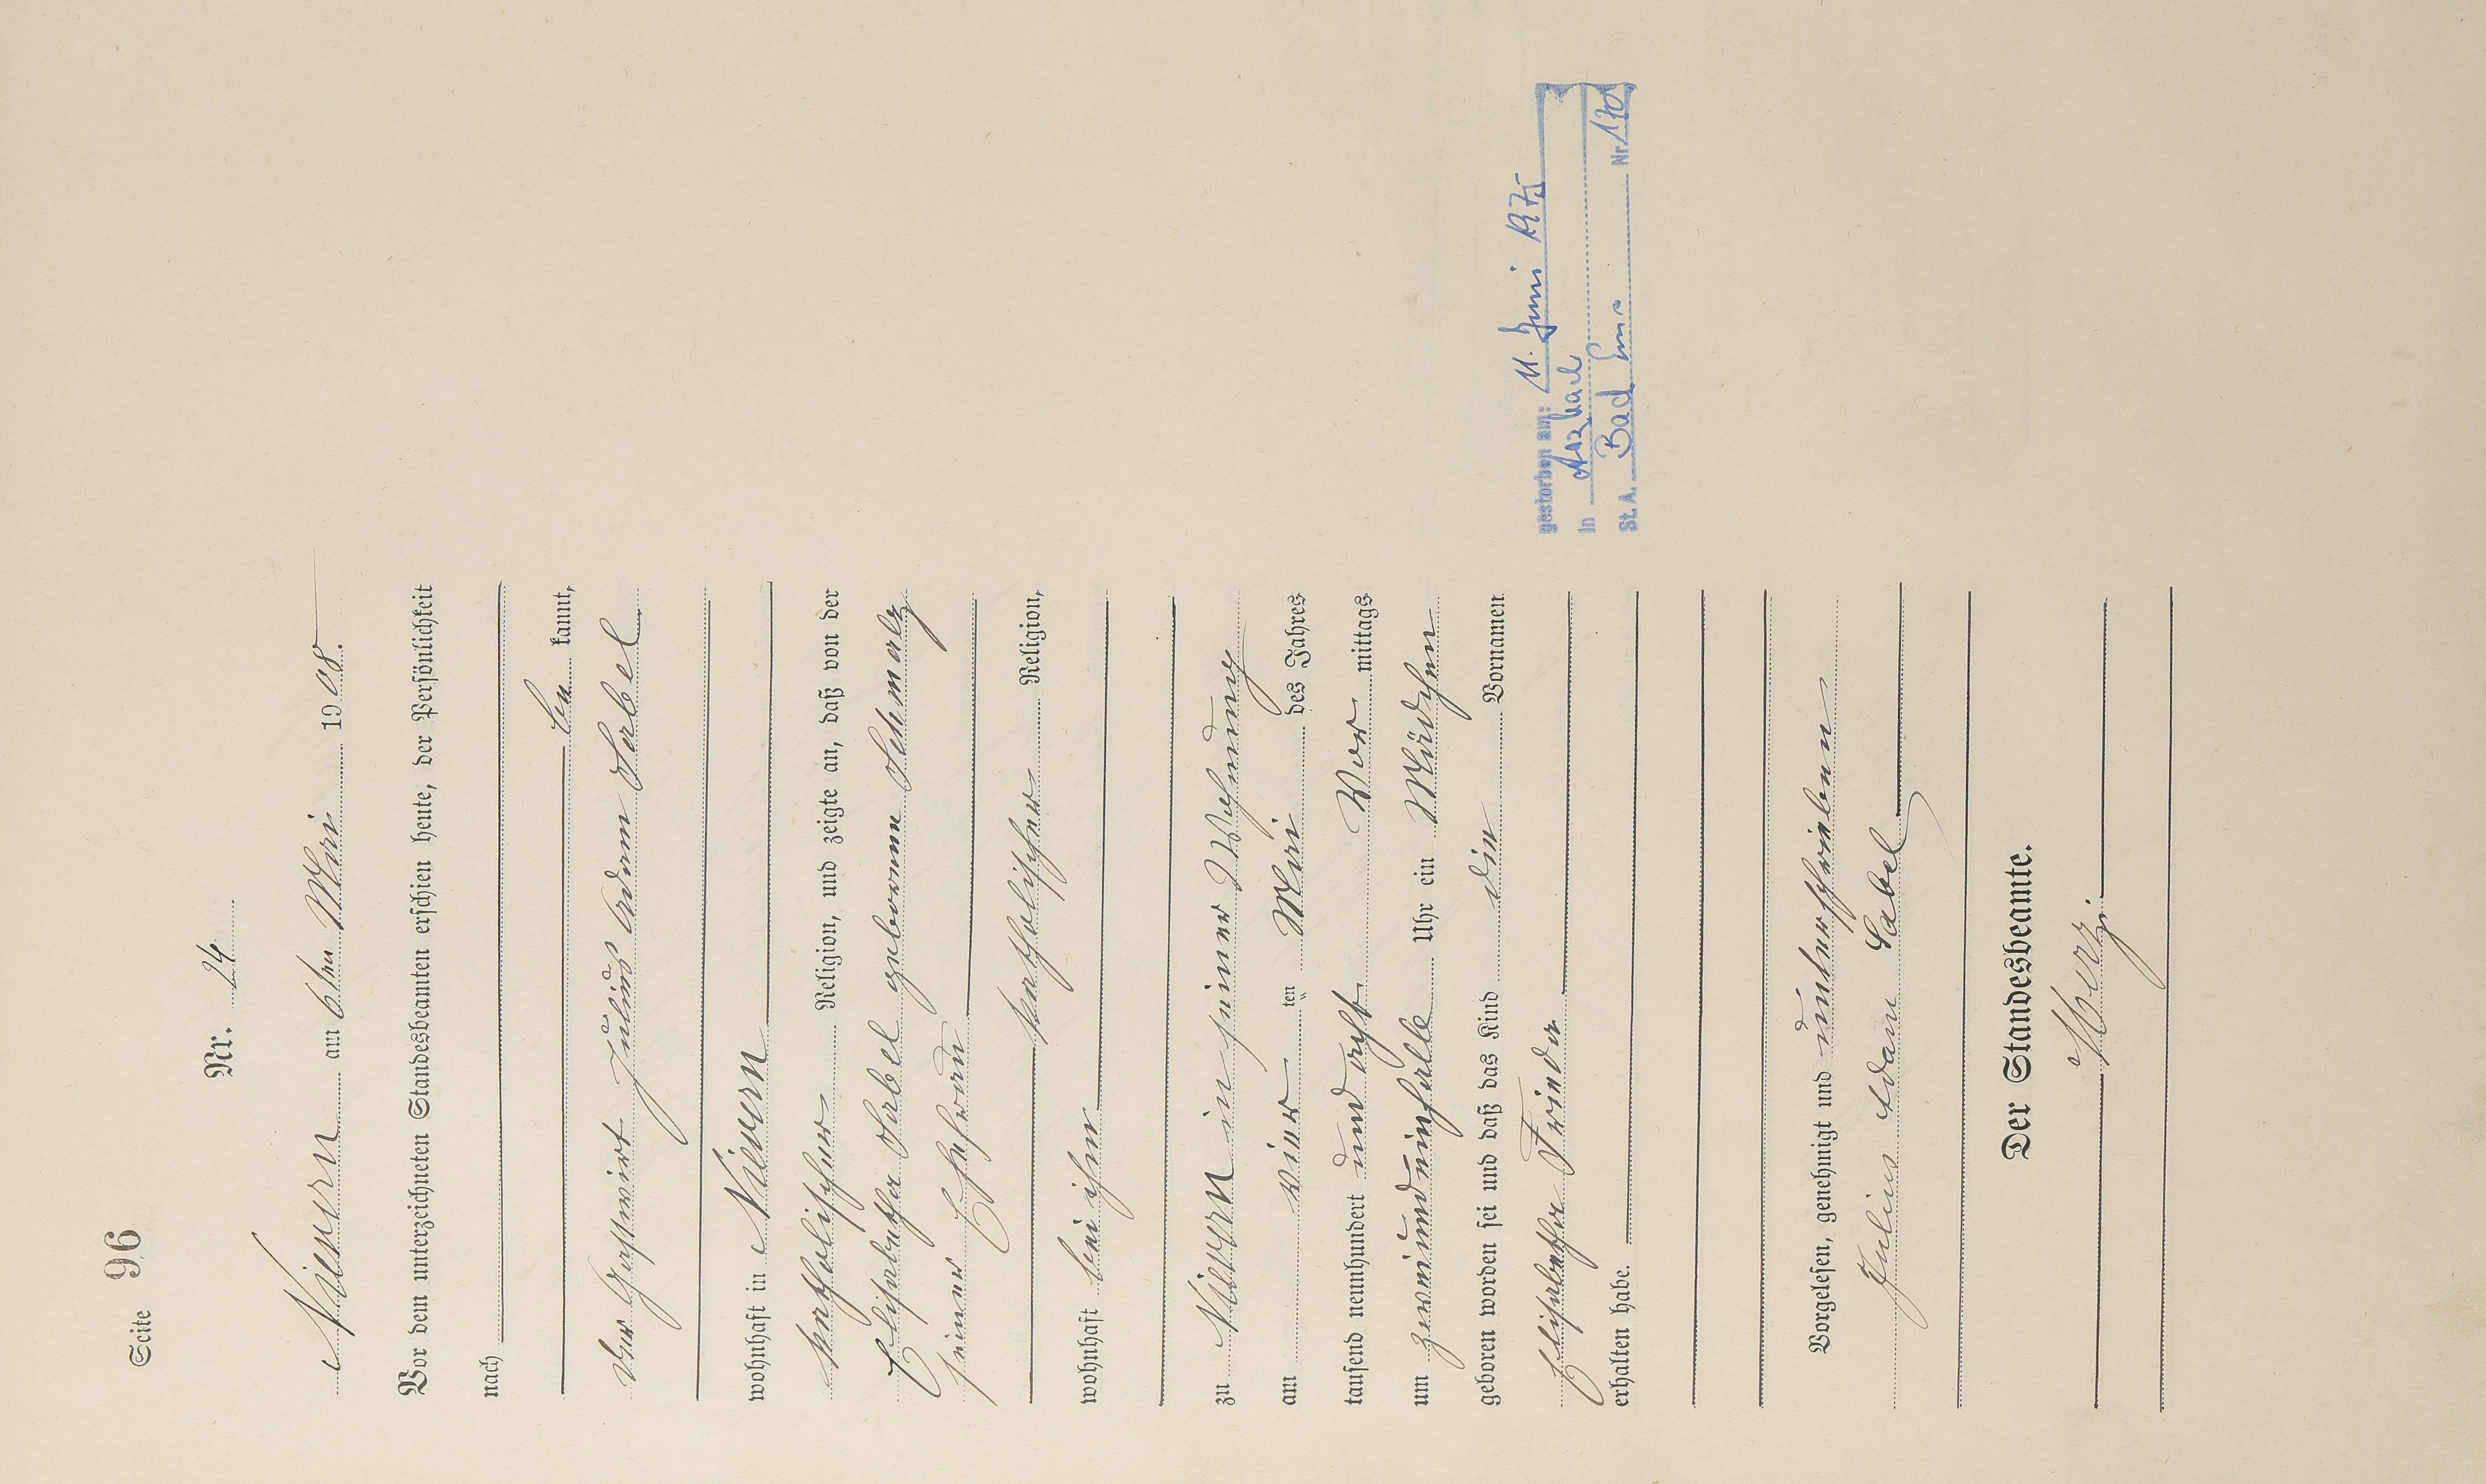 Seite 96
Nr. 24
Nievern am 6ten Mai 1908.
Vor dem unterzeichneten Standesbeamten erschien heute, der Persönlichkeit
nach
be kannt,
der Gastwirt Julius Adam Sabel
wohnhaft in Nievern
katholischer Religion, und zeigte an, daß von der
Elisabetha Sabel geborenen Schmalz
seiner Ehefrau
katholischer Religion,
wohnhaft bei ihm
zu Nievern in seiner Wohnung
am vier ten Mai des Jahres
tausend neunhundert und acht Vor mittags
um zweiundeinhalb Uhr ein Mädchen
geboren worden sei und daß das Kind die Vornamen
Elisabetha Frieda
erhalten habe.
Vorgelesen, genehmigt und unterschrieben
Julius Adam Sabel
Der Standesbeamte.
gestorben am: 11. Juni 1975
in Arzbach
St. A. Bad Ems Nr. 170